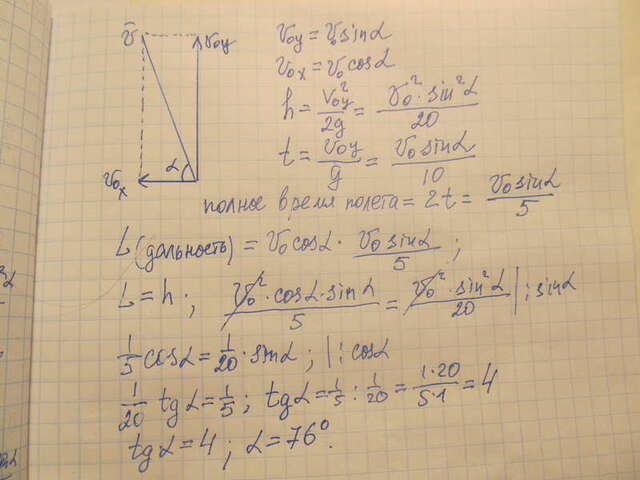 v̄
v₀y
α
v₀x
v₀y = v₀ sinα
v₀x = v₀ cosα
h = v₀y²/2g = v₀²·sin²α/20
t = v₀y/g = v₀ sinα/10
полное время полета = 2t = v₀ sinα/5
L (дальность) = v₀ cosα · v₀ sinα/5 ;
L = h ; v₀²·cosα·sinα/5 = v₀²·sin²α/20 | : sinα
1/5 cosα = 1/20 · sinα ; | : cosα
1/20 tgα = 1/5 ; tgα = 1/5 : 1/20 = 1·20/5·1 = 4
tgα = 4 ; α = 76°.